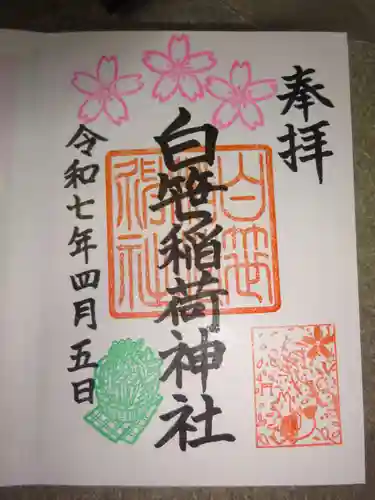 奉拝
白笹稲荷神社
令和七年四月五日